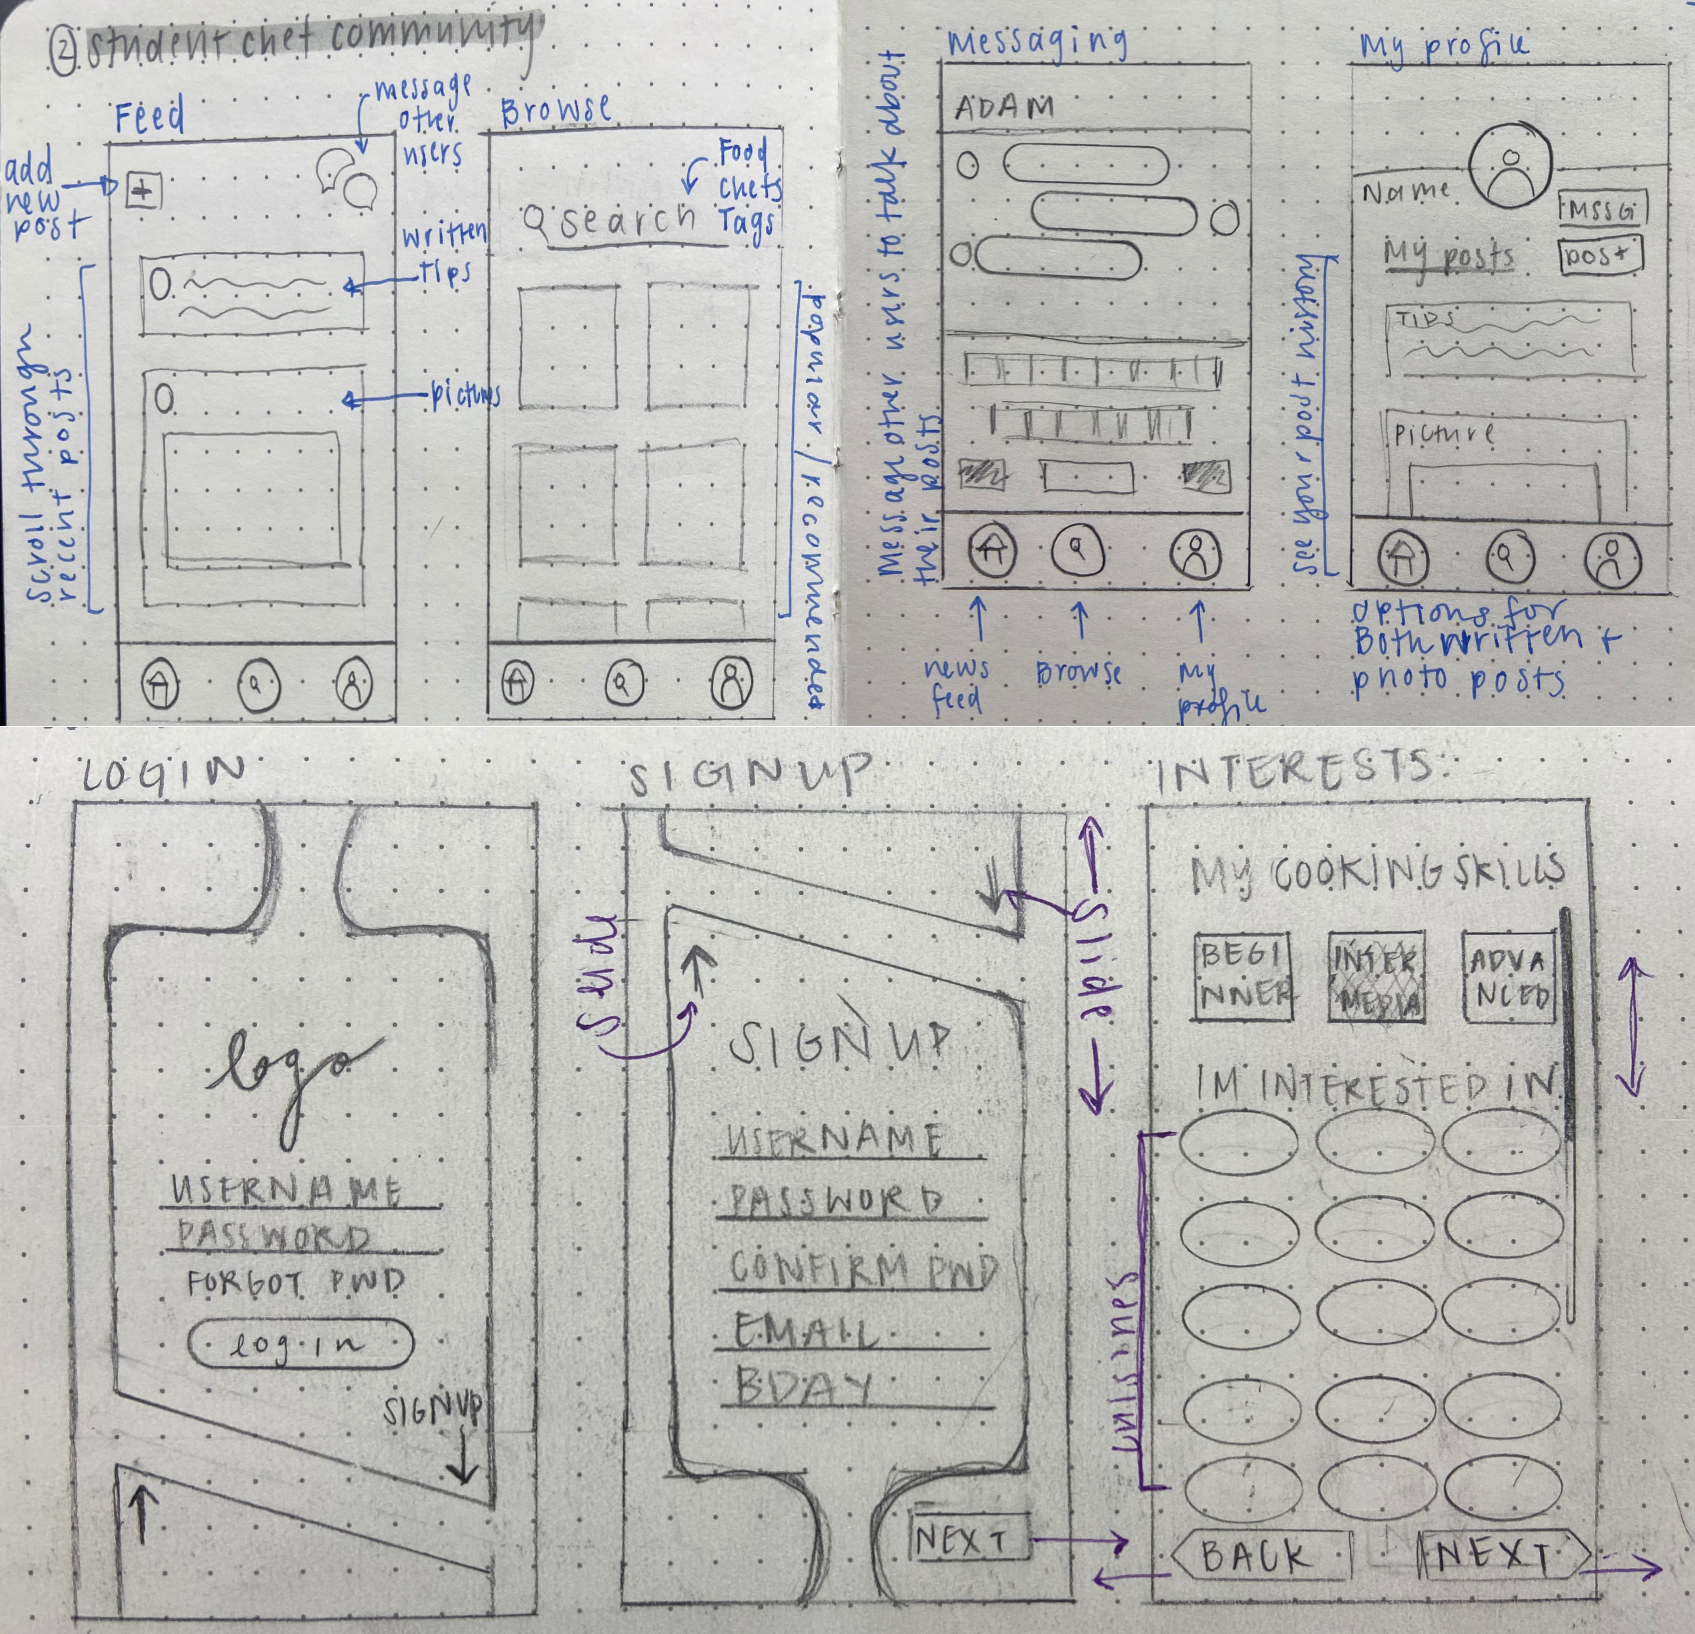 ② student chef community
Feed
message
other
users
add
new
post
+
written
tips
pictures
scroll through
recent posts
Browse
Food
chefs
Tags
search
popular / recommended
Messaging
ADAM
Message other users to talk about
their posts
news
feed
Browse
My
profile
My profile
Name
MSSG
My posts
post
TIPS
picture
see your post history
options for
Both written +
photo posts
LOGIN
logo
USERNAME
PASSWORD
FORGOT PWD
log in
SIGN UP
SIGN UP
Slide
SIGN UP
USERNAME
PASSWORD
CONFIRM PWD
EMAIL
BDAY
NEXT
INTERESTS
MY COOKING SKILLS
BEGI
NNER
INTER
MEDIA
ADVA
NCED
IM INTERESTED IN
cuisines
BACK
NEXT